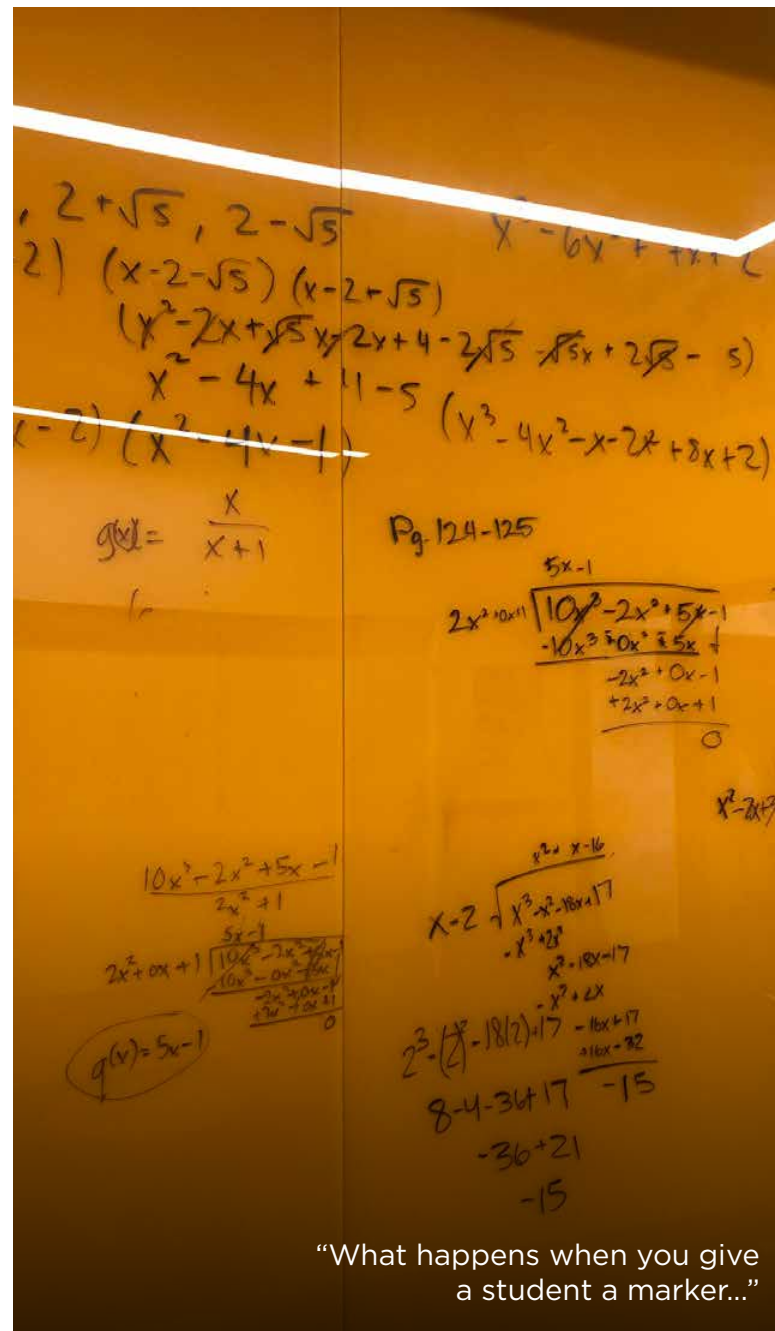 , 2+√5, 2-√5
x³-6x²+7x+2
2) (x-2-√5) (x-2+√5)
(x²-2x+√5x-2x+4-2√5-√5x+2√5-5)
x²-4x+4-5
x-2) (x²-4x-1)
(x³-4x²-x-2x²+8x+2)
g(x)= x
x+1
Pg. 124-125
5x-1
2x²+0x+1 10x³-2x²+5x-1
-10x³ 0x² 5x
-2x²+0x-1
+2x²+0x+1
0
10x³-2x²+5x-1
2x²+1
5x-1
2x²+0x+1 10x³-2x²+5x-1
-10x³-0x²
-2x²+0x-1
+2x²+0x+1
0
q(x)=5x-1
x²+x-16
x-2 x³-x²-18x+17
-x³+2x²
x²-18x-17
-x²+2x
-16x+17
+16x-32
-15
2³-(2)²-18(2)+17
8-4-36+17
-36+21
-15
“What happens when you give
a student a marker...”